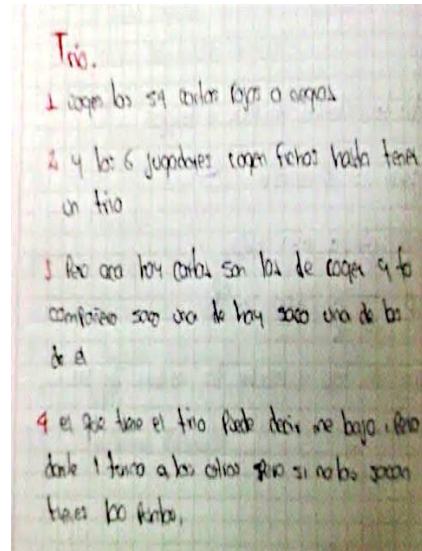 Trio.
1 cogen los 54 cartas rojas o negras
2 y los 6 jugadores cogen fichas hasta tener
un trio
3 Pero aca hoy cartas son las de coger y to
compañero saco una de hoy saco una de las
de el
4 el que tiene el trio Puede decir me bajo. Pero
dando 1 turno a los otros Pero si no los sacan
tienes 100 Puntos.